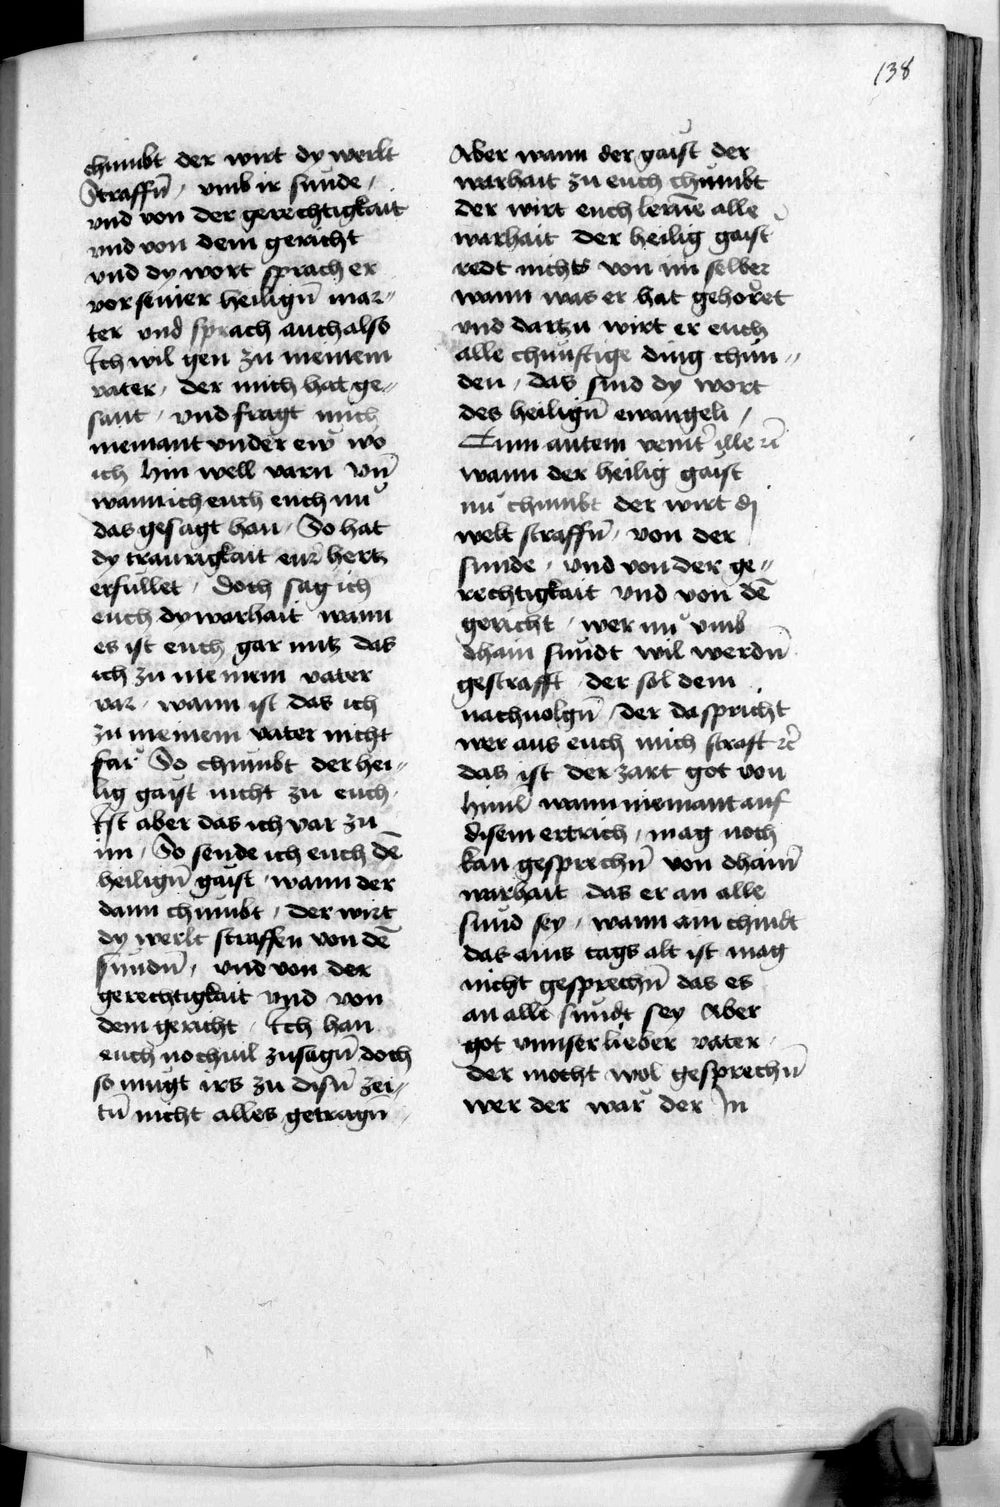 138
chumbt der wirt dy werlt
Straffn̄ / vmb ir sunde /
vnd von der gerechtigkait
vnd von dem gericht
vnd dy wort sprach er
vor seiner heilign̄ mar-
ter vnd sprach auch also
Ich wil gen zu meinem
vater / der mich hat ge-
sant / vnd fragt mich
niemant vnder ew wo
ich hin well varn vn̄
wann ich euch euch nu
das gesagt han / So hat
dy traurigkait eur hertz
erfullet / Doch sag ich
euch dy warhait wann
es ist euch gar nutz das
ich zu meinem vater
var / wann ist das ich
zu meinem vater nicht
far So chumbt der hei-
lig gaist nicht zu euch /
Ist aber das ich var zu
im / So sende ich euch dē
heilign̄ gaist / wann der
dann chumbt / der wirt
dy werlt straffen von dē
sundn̄ / vnd von der
gerechtigkait vnd von
dem gericht / Ich han
euch noch uil zusagn̄ doch
so mugt irs zu disn̄ zei-
tn̄ nicht alles getragn̄ /
Aber wann der gaist der
warhait zu euch chumbt
der wirt euch lerne alle
warhait der heilig gaist
redt nichts von im selber
wann was er hat gehoret
vnd dartzu wirt er euch
alle chunftige ding chun-
den / das sind dy wort
des heilign̄ ewangeli /
Cum autem venit ille ꝛc̄
wann der heilig gaist
nu chumbt der wirt dj
welt straffn̄ / von der
sunde / vnd von der ge-
rechtigkait vnd von dē
gericht / wer nu vmb
dhain sundt wil werdn̄
gestrafft / der sol dem
nachuolgn̄ / der da spricht
wer aus euch mich straft ꝛc̄
das ist der zart got von
himl̄ wann niemant auf
disem ertrich / mag noch
kan gesprechn̄ von dhain̄
warhait das er an alle
sund sey / wann ain chindt
das ains tags alt ist mag
nicht gesprechn̄ das es
an alle sundt sey Aber
got vnnser lieber vater /
der mocht wol gesprechn̄
wer der war der In